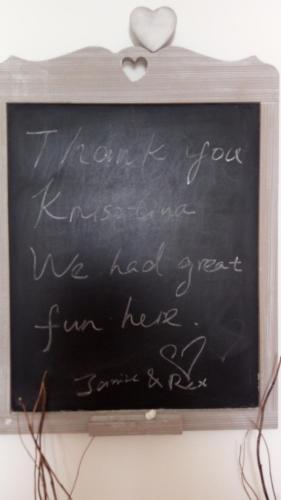 Thank you
Krisztina
We had great
fun here.
Janice & Rex